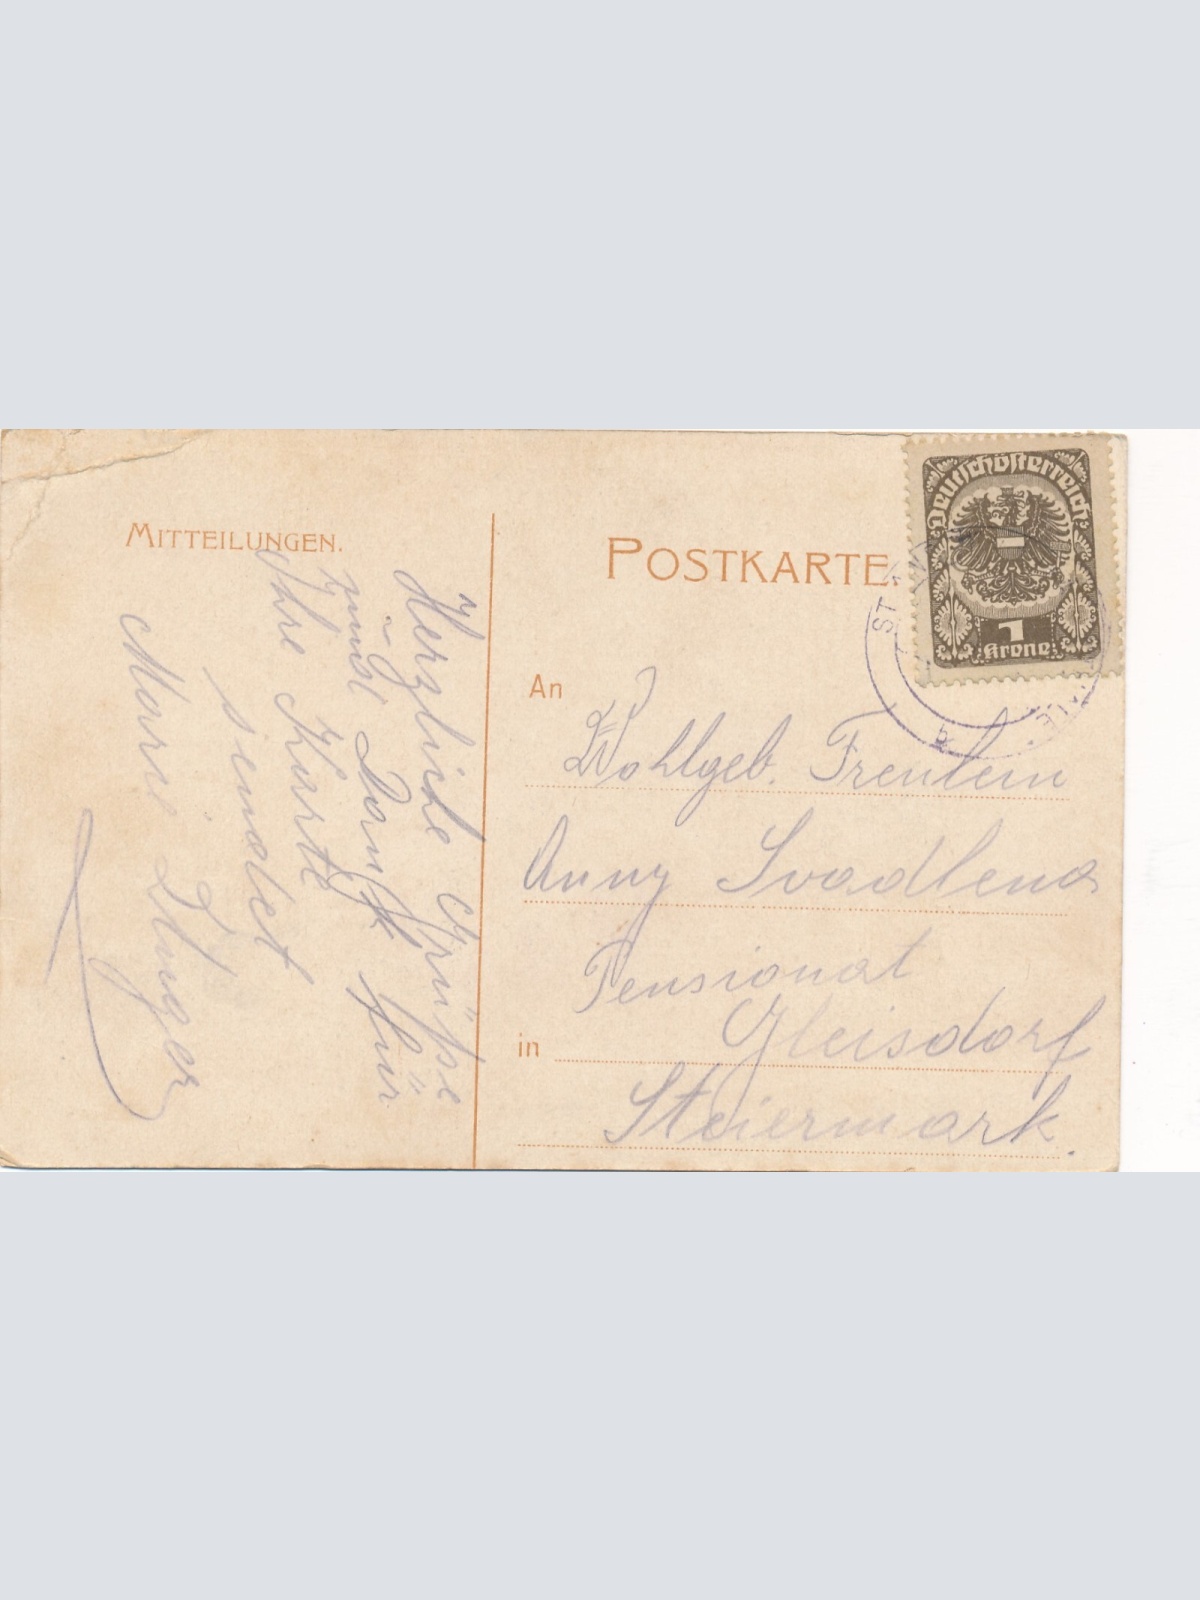 MITTEILUNGEN.
Herzliche Grüße
und Dank für
Ihre Karte
sendet
POSTKARTE.
Deutschösterreich
1
Krone
ST
b
An
Wohlgeb. Freulein
Anny Svadlena
Pensionat
in Gleisdorf
Steiermark.